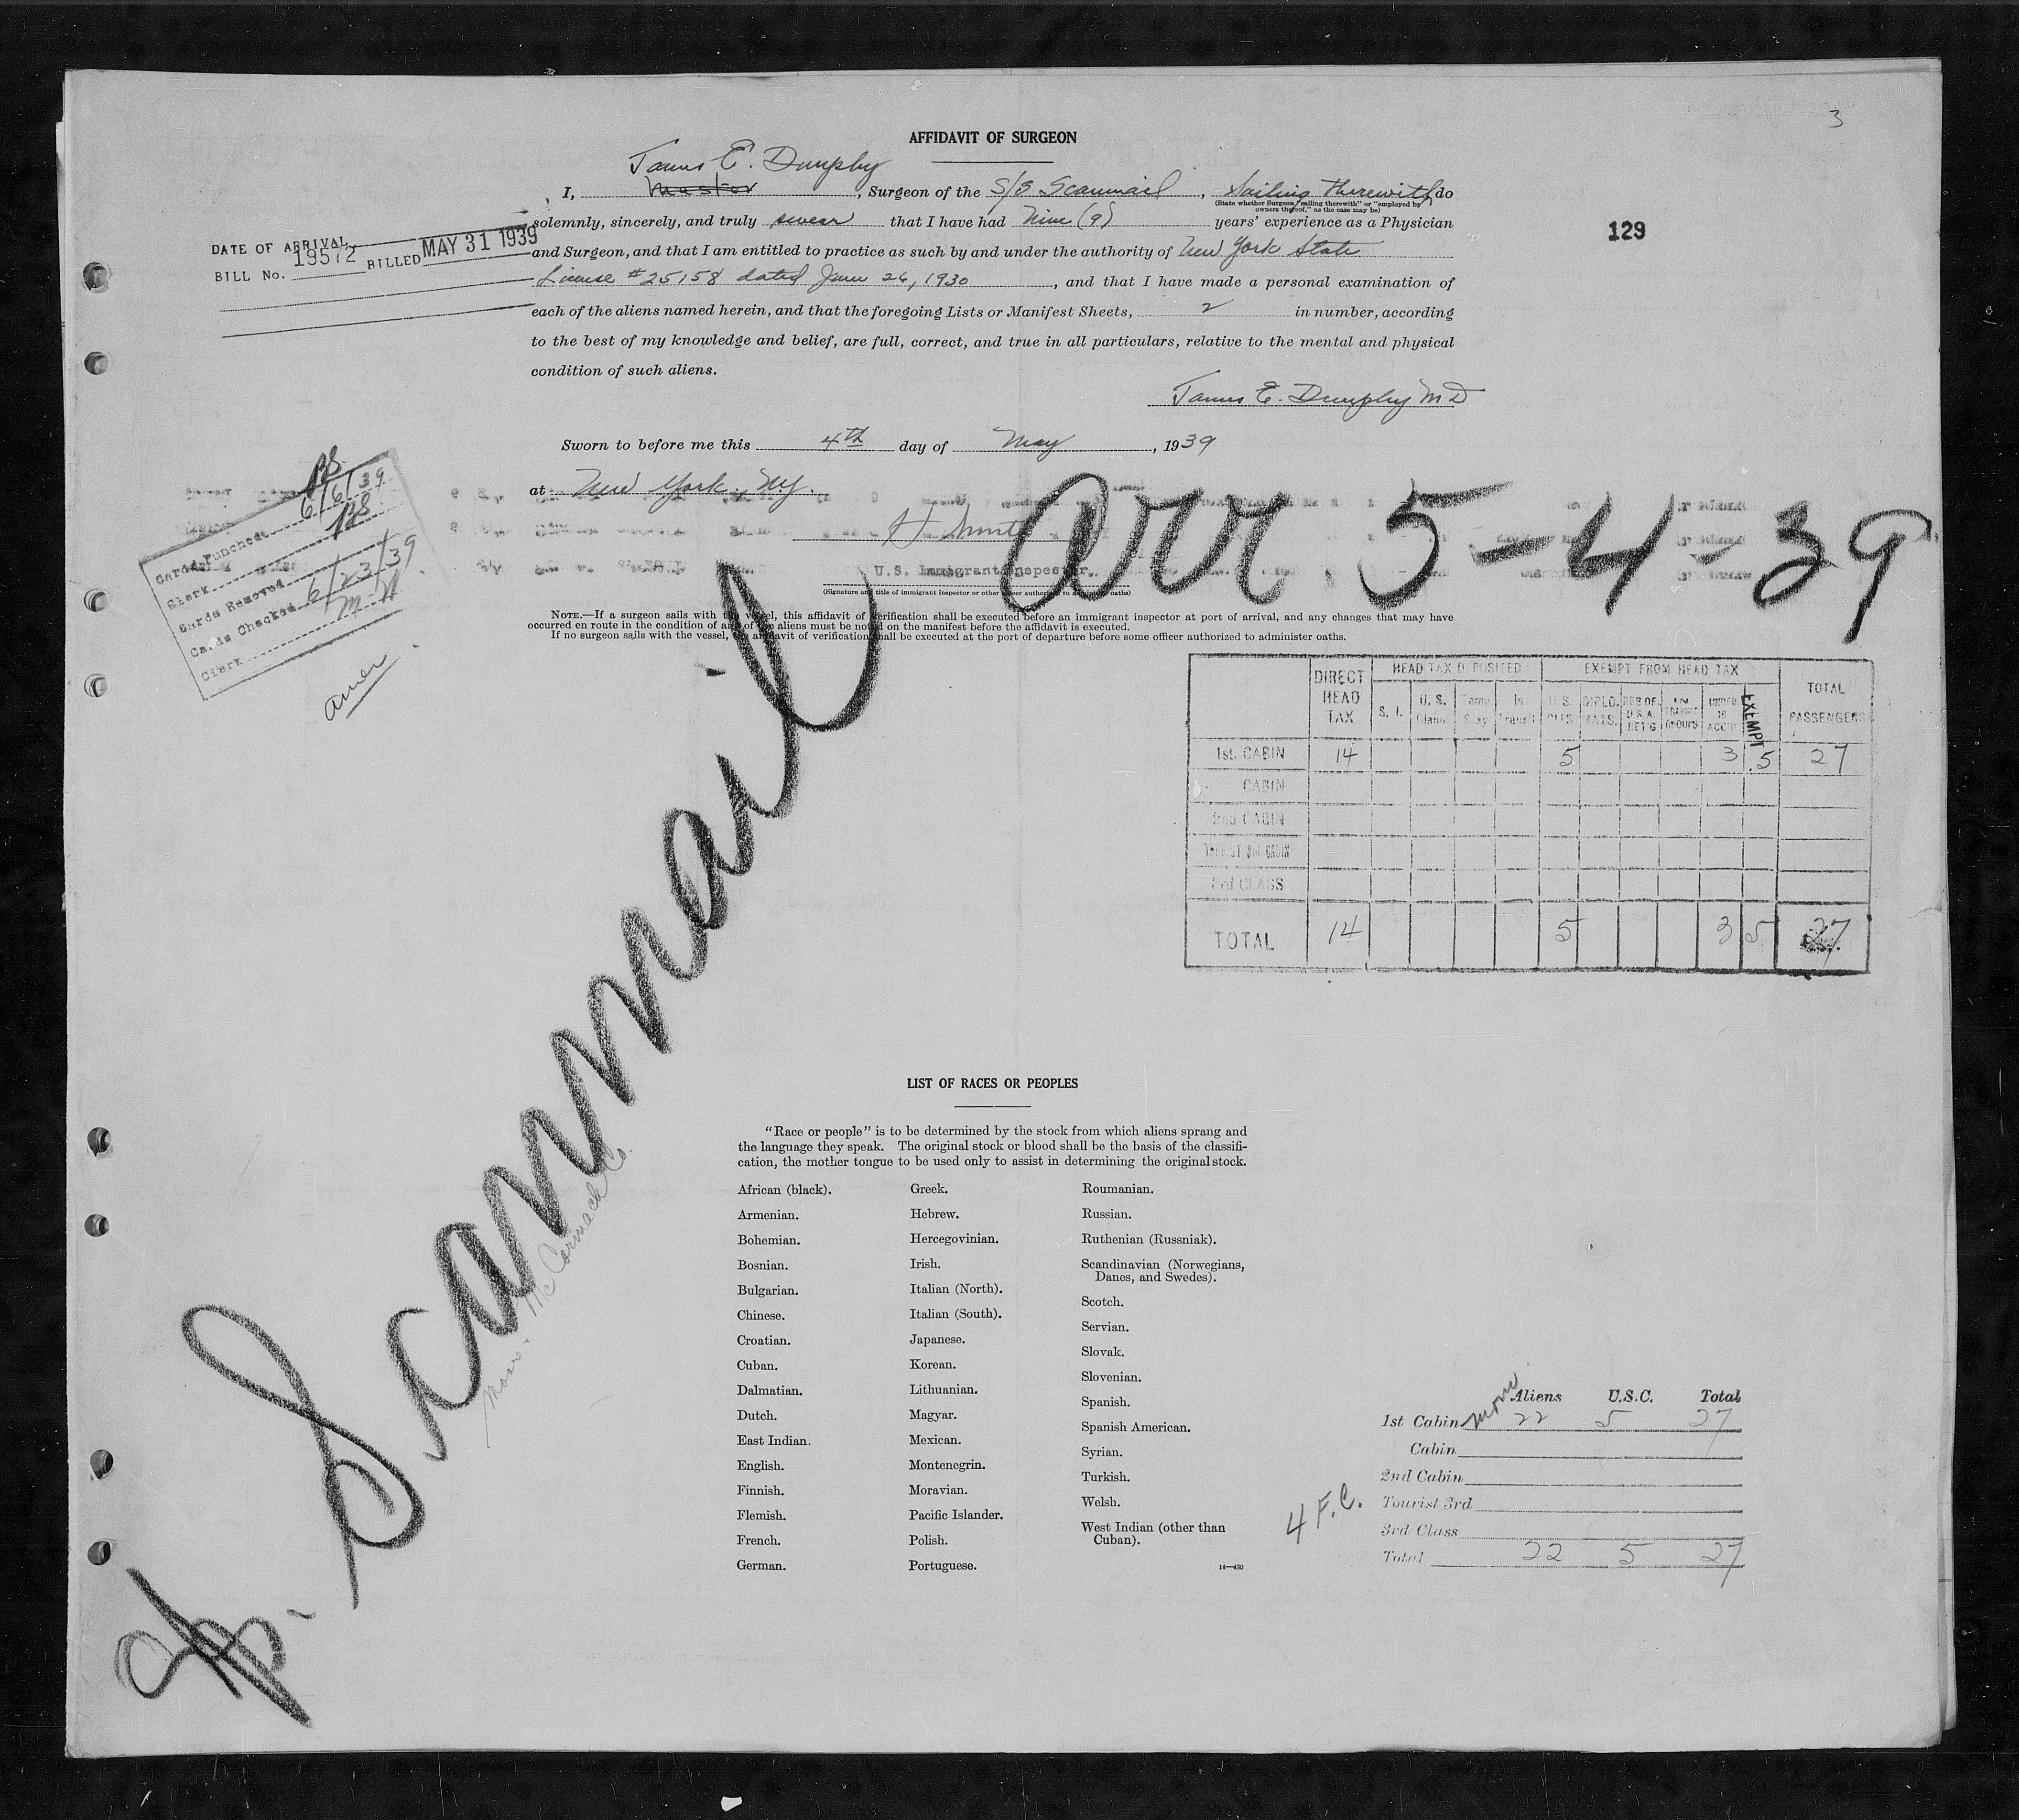 3
AFFIDAVIT OF SURGEON
James E. Dunphy
I, Master, Surgeon of the S/S Scanmail, Sailing therewith, do
(State whether Surgeon "sailing therewith" or "employed by owners thereof," as the case may be)
solemnly, sincerely, and truly swear that I have had Nine (9) years' experience as a Physician
and Surgeon, and that I am entitled to practice as such by and under the authority of New York State
License #25158 dated June 26, 1930, and that I have made a personal examination of
each of the aliens named herein, and that the foregoing Lists or Manifest Sheets, 2 in number, according
to the best of my knowledge and belief, are full, correct, and true in all particulars, relative to the mental and physical
condition of such aliens.
129
DATE OF ARRIVAL
BILL No. 19572 BILLED MAY 31 1939
James E. Dunphy MD
Sworn to before me this 4th day of May, 1939
at New York, NY.
U.S. Immigrant Inspector.
(Signature and title of immigrant inspector or other officer authorized to administer oaths)
Arr 5-4-39
Cards Punched 6/6/39
Clerk
Cards Removed
Cards Checked 6/23/39
Clerk
NOTE.—If a surgeon sails with the vessel, this affidavit of verification shall be executed before an immigrant inspector at port of arrival, and any changes that may have
occurred en route in the condition of any of the aliens must be noted on the manifest before the affidavit is executed.
If no surgeon sails with the vessel, the affidavit of verification shall be executed at the port of departure before some officer authorized to administer oaths.
DIRECT HEAD TAX
HEAD TAX DEPOSITED
EXEMPT FROM HEAD TAX
TOTAL PASSENGERS
S. I. U. S. Claim Temp Stay In Transit U.S. CITS. DIPLO. MATS. RES OF. U.S.A. RET'G IN TRANSIT GROUPS UNDER 16 ACC'D EXEMPT
1st. CABIN 14 5 3 5 27
CABIN
2nd CABIN
TOURIST 3rd CABIN
3rd CLASS
TOTAL 14 5 3 5 27
Scanmail
McCormack Co.
LIST OF RACES OR PEOPLES
"Race or people" is to be determined by the stock from which aliens sprang and
the language they speak. The original stock or blood shall be the basis of the classifi-
cation, the mother tongue to be used only to assist in determining the original stock.
African (black).
Armenian.
Bohemian.
Bosnian.
Bulgarian.
Chinese.
Croatian.
Cuban.
Dalmatian.
Dutch.
East Indian.
English.
Finnish.
Flemish.
French.
German.
Greek.
Hebrew.
Hercegovinian.
Irish.
Italian (North).
Italian (South).
Japanese.
Korean.
Lithuanian.
Magyar.
Mexican.
Montenegrin.
Moravian.
Pacific Islander.
Polish.
Portuguese.
Roumanian.
Russian.
Ruthenian (Russniak).
Scandinavian (Norwegians,
Danes, and Swedes).
Scotch.
Servian.
Slovak.
Slovenian.
Spanish.
Spanish American.
Syrian.
Turkish.
Welsh.
West Indian (other than
Cuban).
14—430
Aliens U.S.C. Total
1st Cabin 22 5 27
Cabin
2nd Cabin
Tourist 3rd
3rd Class
Total 22 5 27
4 F.C.